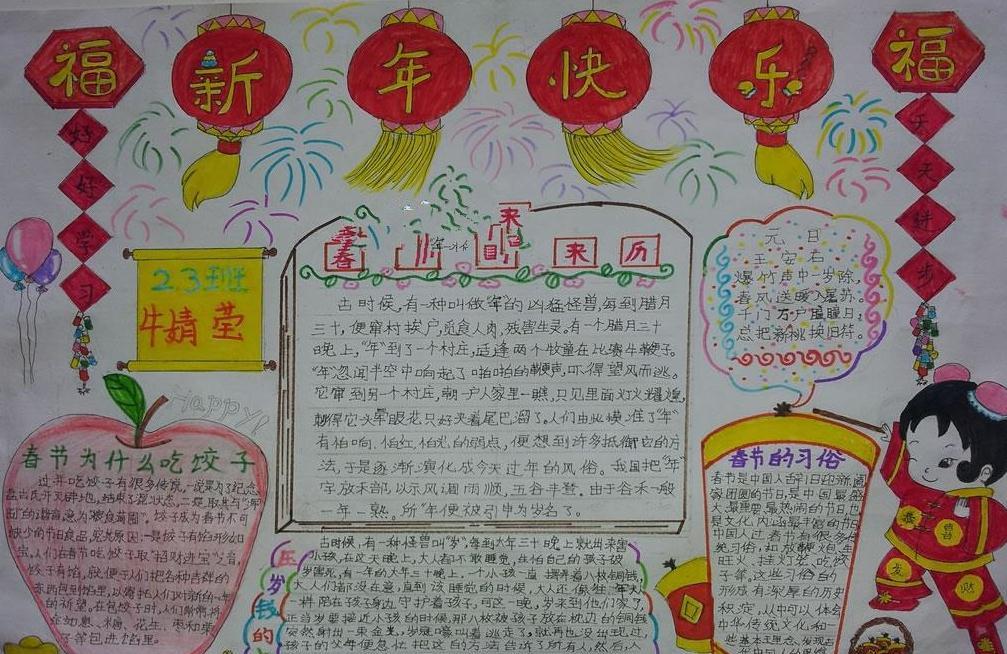 福 新 年 快 乐 福
好好学习
天天进步
2.3班
牛婧莹
春节 来历
古时候,有一种叫做"年"的凶猛怪兽,每到腊月
三十,便窜村挨户,觅食人肉,残害生灵。有一个腊月三十
晚上,"年"到了一个村庄,适逢两个牧童在比赛牛鞭子。
"年"忽闻半空中响起了啪啪的鞭声,吓得望风而逃。
它窜到另一个村庄,朝一户人家里一瞧,只见里面灯火辉煌,
头晕眼花,只好夹着尾巴溜了。人们由此摸准了"年"
有怕响,怕红,怕光的弱点,便想到许多抵御它的方
法,于是逐渐演化成今天过年的风俗。我国把"年"
字放禾部,以示风调雨顺,五谷丰登。由于谷禾一般
一年一熟。所"年"便被引申为岁名了。
元日
王安石
爆竹声中一岁除,
春风送暖入屠苏。
千门万户曈曈日,
总把新桃换旧符。
Happy!
春节为什么吃饺子
过年吃饺子有很多传说,一说是为了纪念
盘古氏开天辟地,结束了混沌状态,二是取其与"浑
囤"的谐音,意为"粮食满囤"。饺子成为春节不可
缺少的节日食品,究其原因:一是饺子有馅形如
宝,人们在春节吃饺子取"招财进宝"之音,
饺子有馅,就便于人们把各种吉祥的
东西包到馅里,以寄托人们对新的一年
的祈望。在包饺子时,人们常常将
糖、花生、枣和栗
子等包进馅里。
春节的习俗
春节是中国人
家团圆的节日,是中国最盛
大、最重要、最热闹的节日,也
是文化内涵最丰富的节日
中国人过春节有很多传
统习俗,如放鞭炮、
挂灯笼、吃饺
子等。这些习俗的
形成有深厚的历史
积淀,从中可以体会
中华传统文化和一
压岁钱的
古时候,有一种怪兽叫"岁",每到大年三十晚上就出来害
小孩,在这天晚上,大人都不敢睡觉,生怕自己的孩子被
岁害死。有一年的大年三十晚上,一个小孩一直摆弄着八枚铜钱,
大人们都没在意,直到该睡觉的时候,大人还像往年
一样陪在孩子身边守护着孩子,可这一晚,岁来到他们家了,
正当岁要接近小孩的时候,那八枚被孩子放在枕边的铜钱
突然射出一束金光,岁嚎叫着逃走了,就再也没出现过,
孩子的父母便急忙把这个方法告诉了所有人,然后,人